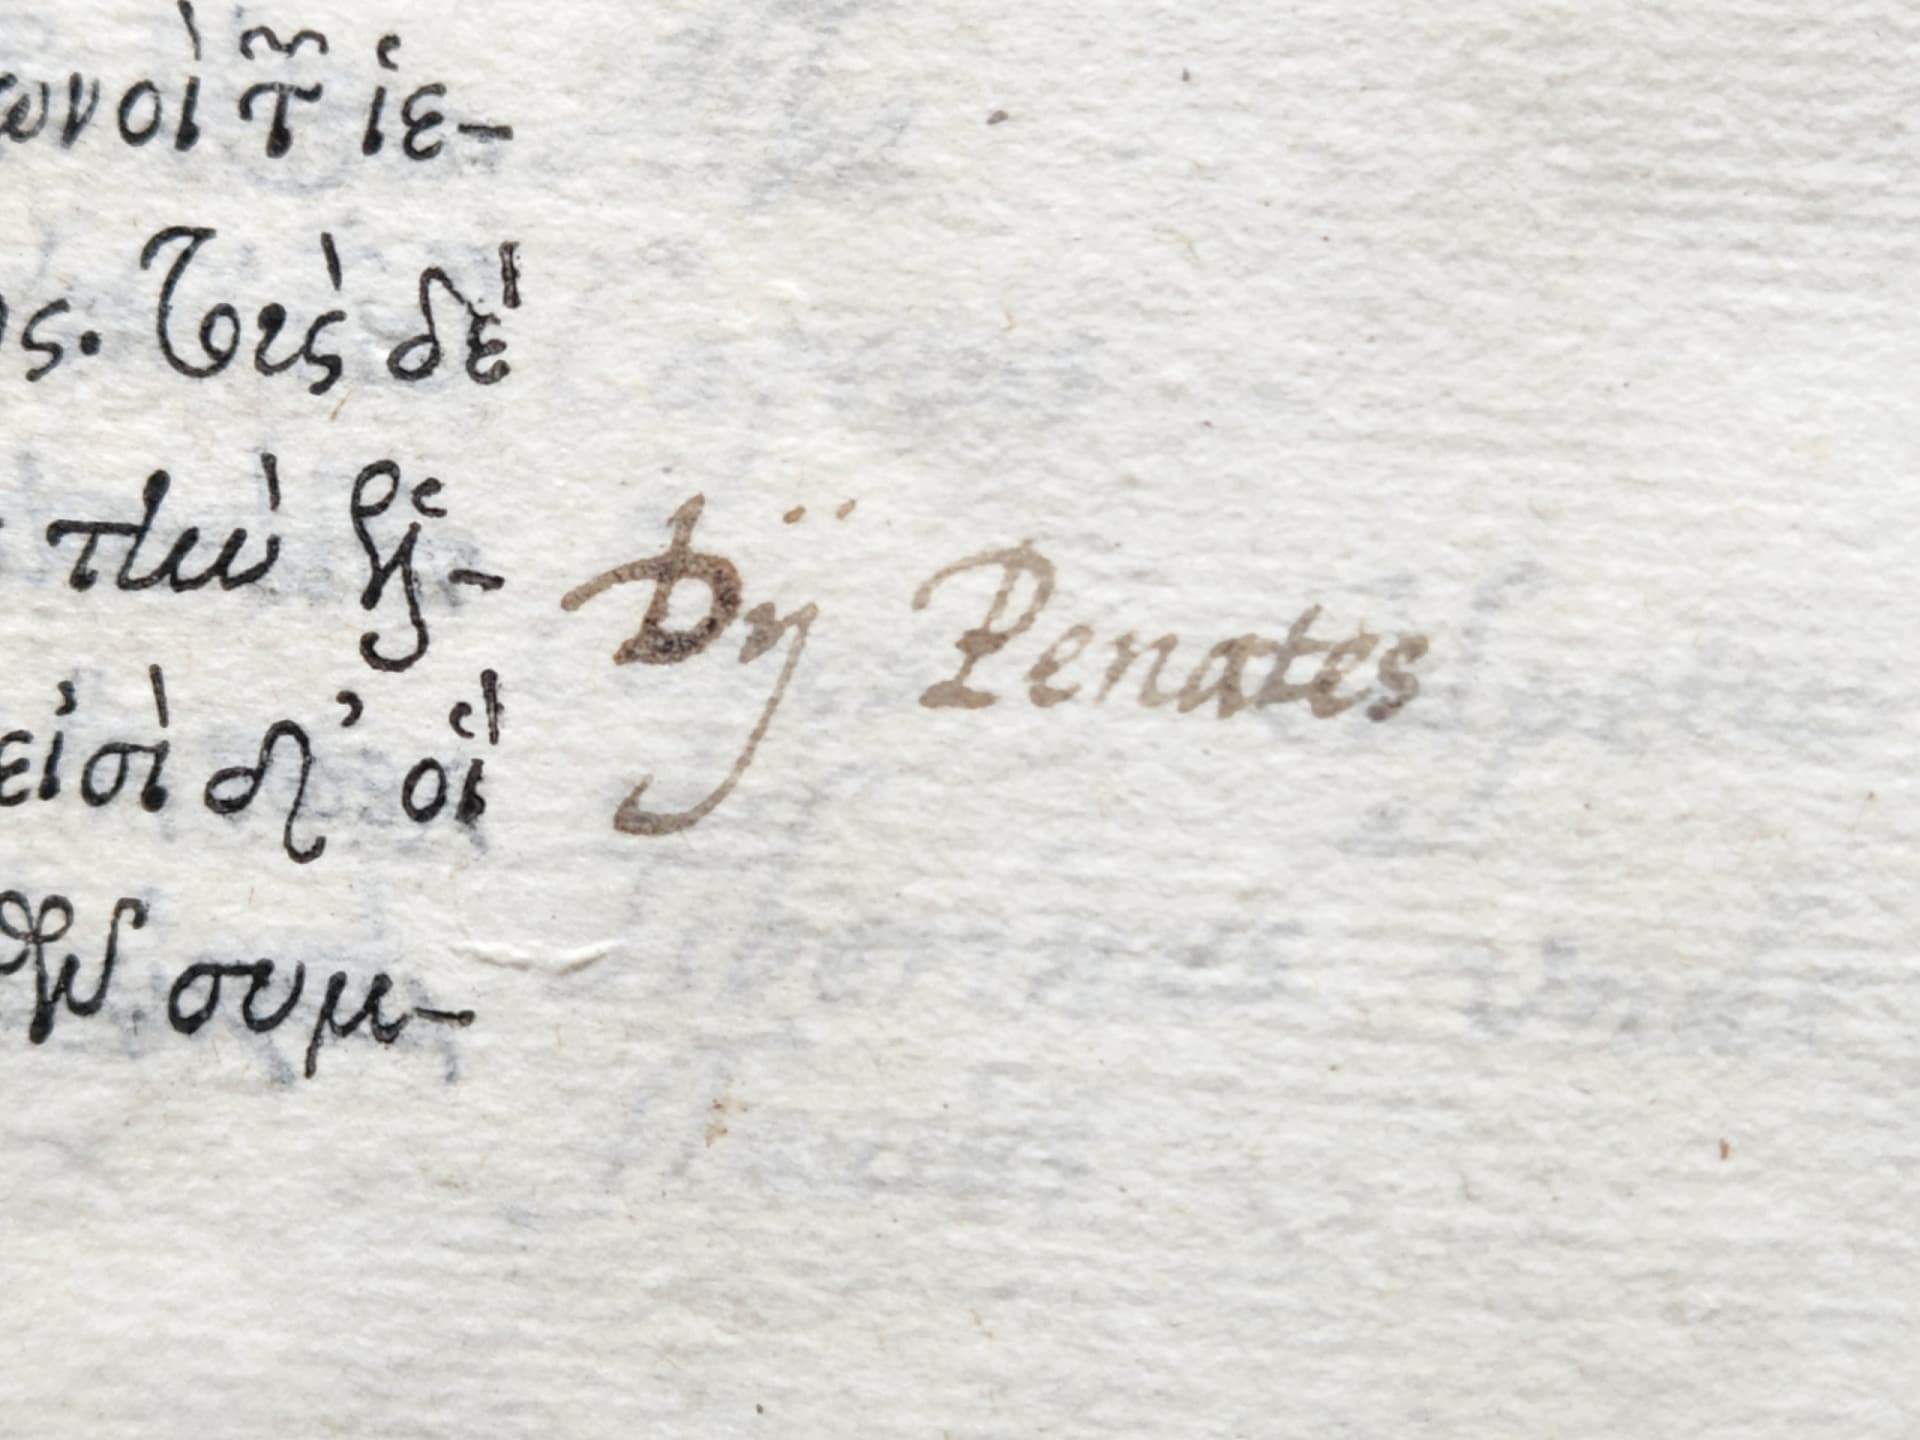 ωνοὶ τ῀ ἱε-
ς. τοῖς δὲ
τὴν ἑξ-
εἰσὶ δ' οἵ
συμ-
Dÿ Penates